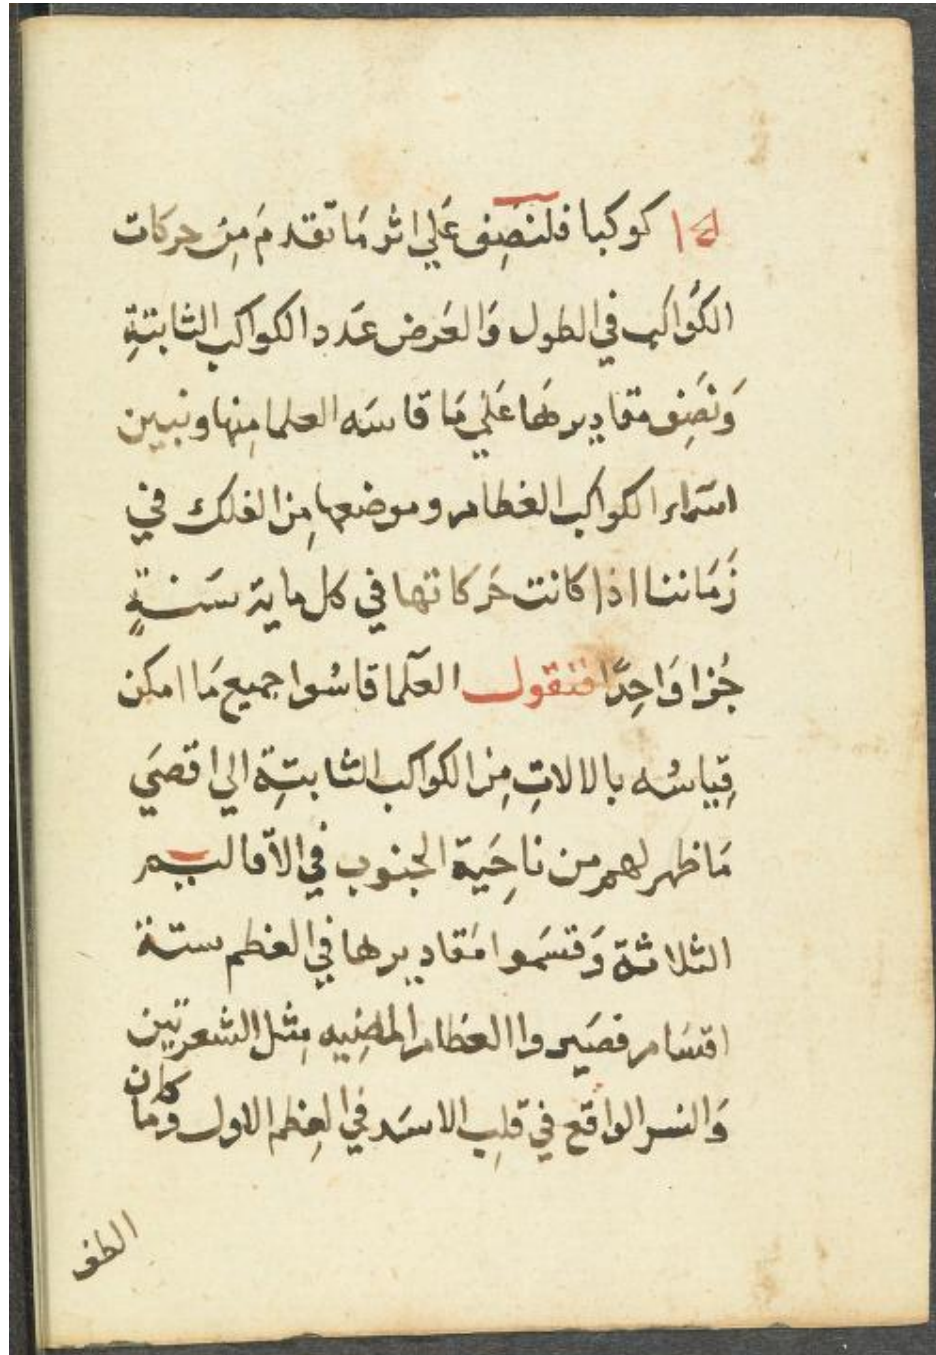 كوكبا فلنصِف عَلي اثر مَا تقدمَ مِن حركات
الكَواكب في الطول وَالعَرض عَدد الكواكب الثابتةِ
وَنصَِف مقاديرهَا عَلي مَا قاسَه العلما مِنها ونبين
اسَماء الكواكب العظام وموضعها مِن الفلك في
زَمَاننا اذا كانت حَركاتها في كل ماية سَنةٍ
جُزا وَاحِدًا فنقول العلَما قاسُوا جميع مَا امكن
قِياسُه بالالاتِ مِن الكواكب الثابتِة الي اقصَي
مَا ظهر لهم من ناحِيَة الجنوب في الاقاليم
الثلاثة وَقسَموا مَقاديرها في العظم ستة
اقسَام فصَيروا العظام المضِيه مِثل الشعريين
وَالنسر الواقع في قلِب الاسَد في العِظم الاول وَمَا كان
الطف